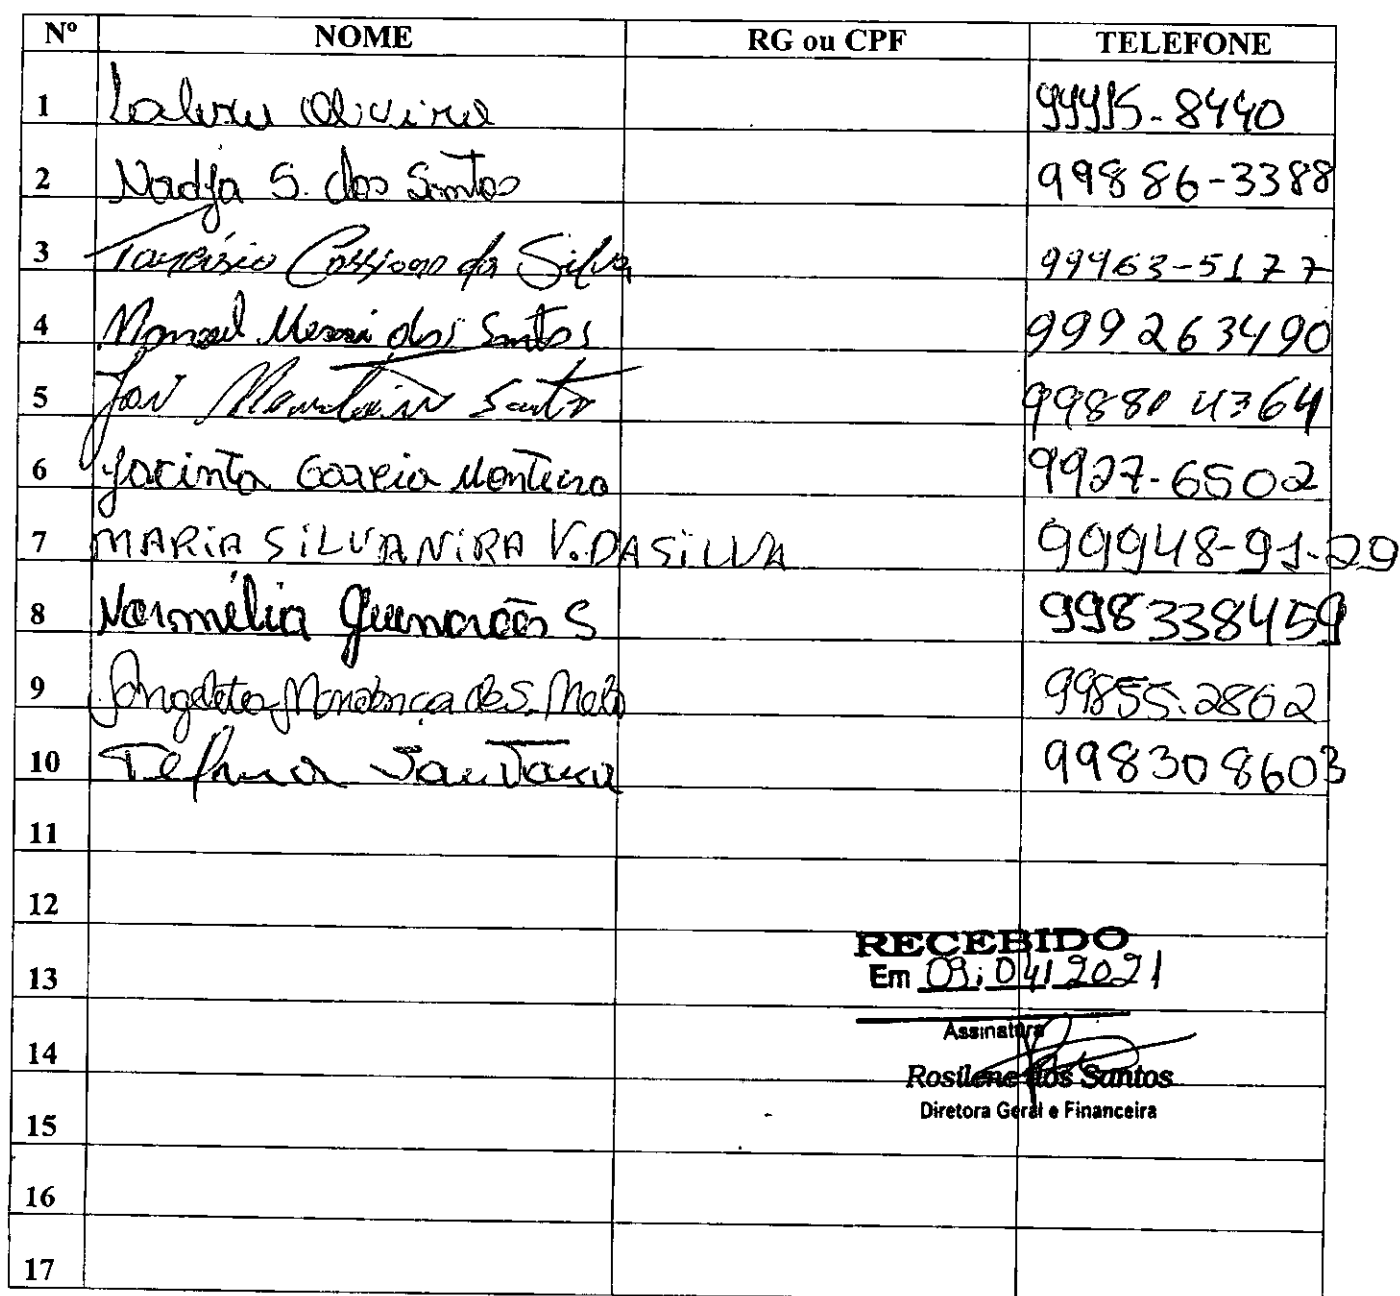 Nº NOME RG ou CPF TELEFONE
1 Oliveira
2 Nadja S. dos Santos 99886-3388
3 Tarcísio Cassiano da Silva 99963-5177
4 Manoel Messi dos Santos 999263490
5 José Santos 998804364
6 Jacinta Correia Monteiro 9927-6502
7 MARIA SILVANIRA V. DA SILVA 99948-91-29
8 Normélia Guimarães S 998338459
9 Angeleta Mendonça de S. Melo 99855.2862
10 Telma Santana 998308603
11
12
RECEBIDO
13 Em 09/04/2021
Assinatura
14
Rosilene dos Santos
Diretora Geral e Financeira
15
16
17